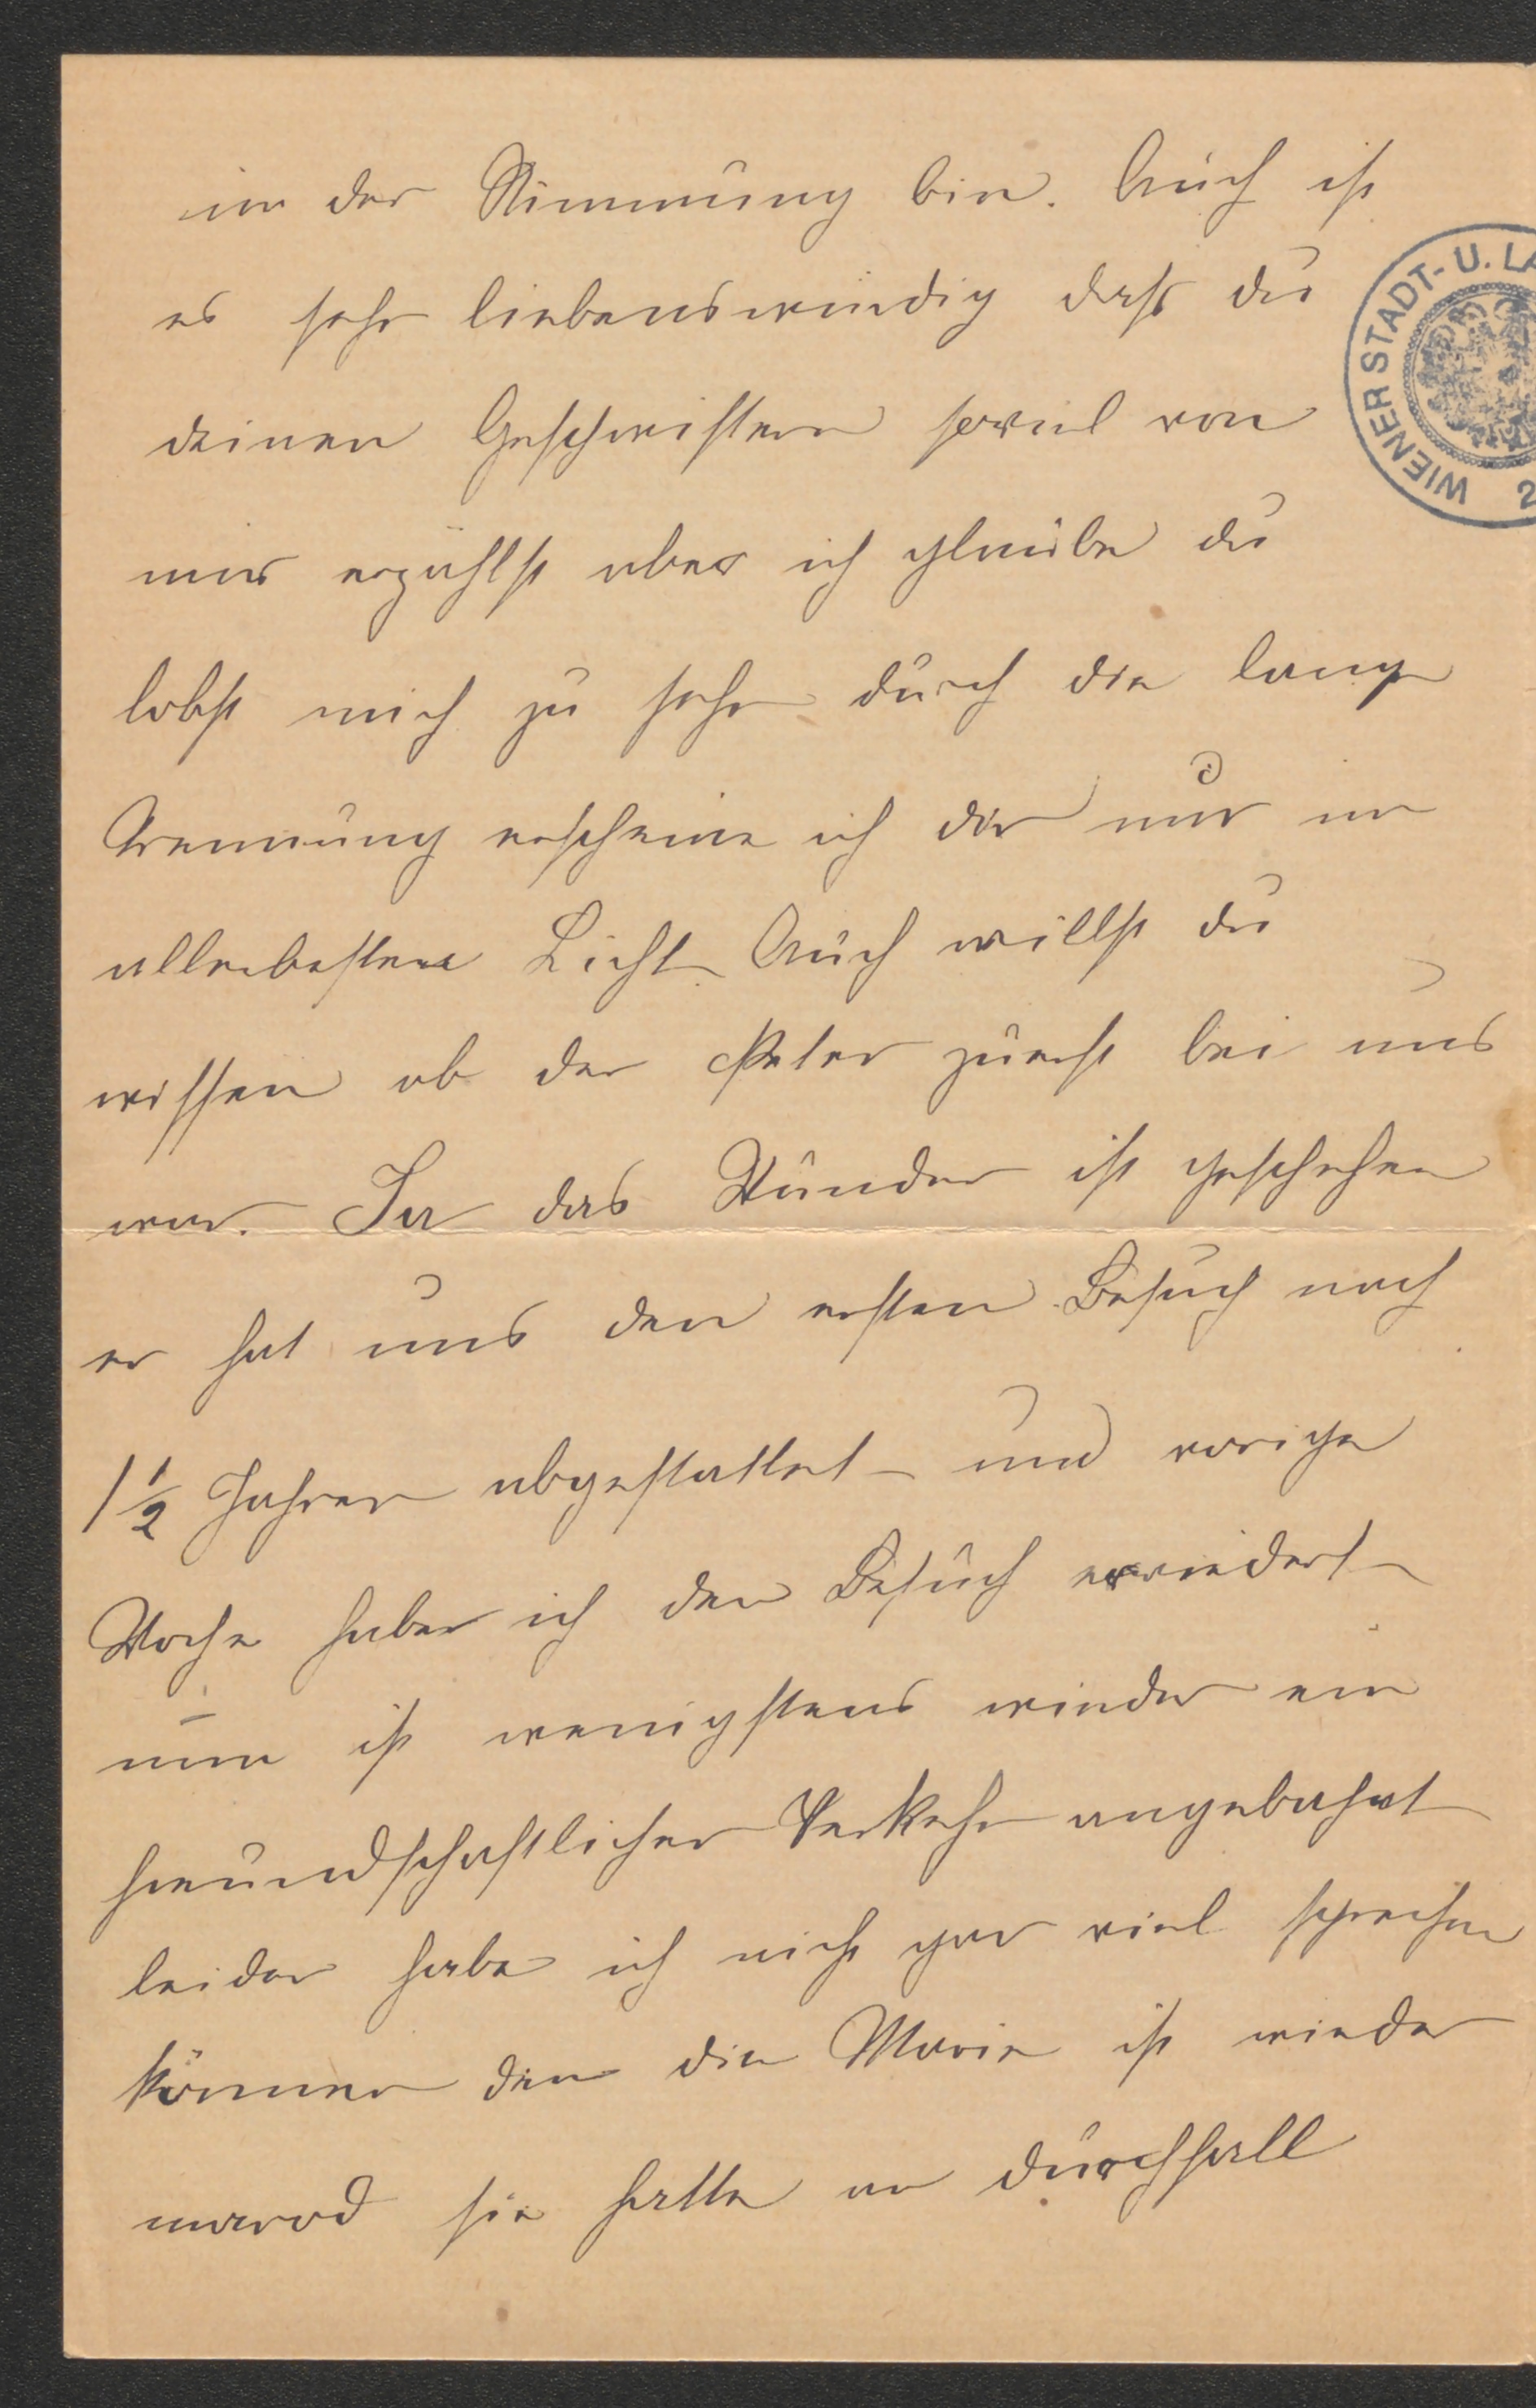 in der Stimmung bin. Auch ist
es sehr liebenswürdig daß du
deinen Geschwistern soviel von
mir erzählst aber ich glaube du
lobst mich zu sehr durch die lange
Trennung erscheine ich dir nur im
allerbesten Licht. Auch willst du
wissen ob der Peter zuerst bei uns
war. Ja das Wunder ist geschehen
er hat uns den ersten Besuch nach
1 1/2 Jahren abgestattet und vorige
Woche habe ich den Besuch erwiedert
nun ist wenigstens wieder ein
freundschaftlicher Verkehr angebahnt
leider habe ich nicht gar viel sprechen
können den die Marie ist wieder
marod sie hatte an durchfall
WIENER STADT- U. LA
2